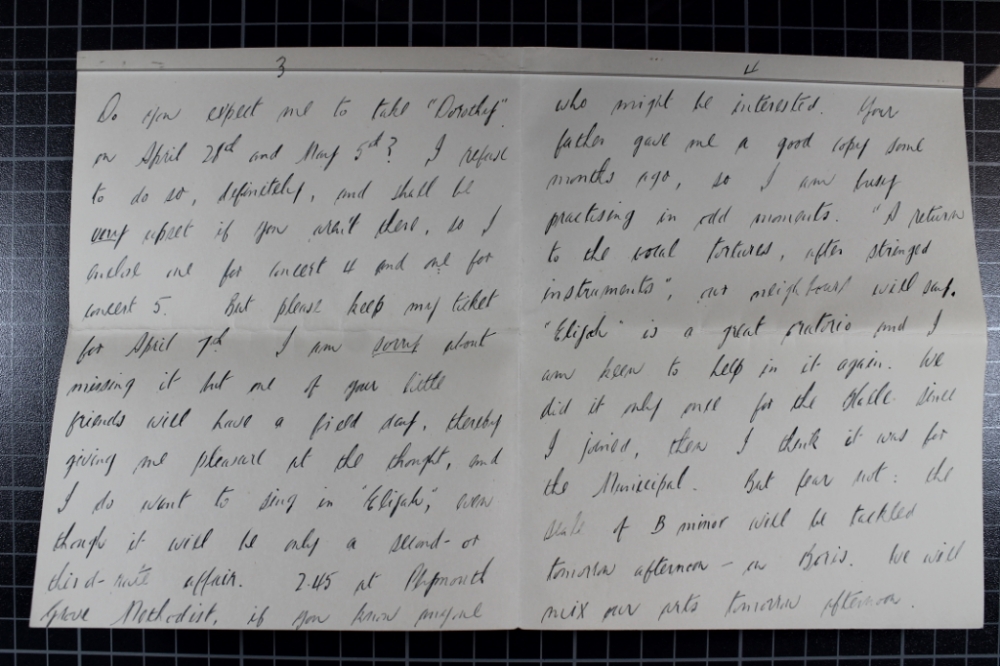 3
Do you expect me to take "Dorothy"
on April 28th and May 5th? I refuse
to do so, definitely, and shall be
very upset if you aren't there, so I
enclose one for concert 4 and one for
concert 5. But please keep my ticket
for April 7th. I am sorry about
missing it but one of your little
friends will have a field day, thereby
giving me pleasure at the thought, and
I do want to sing in "Elijah", even
though it will be only a second- or
third-rate affair. 2.45 at Plymouth
Grove Methodist, if you know anyone
4
who might be interested. Your
father gave me a good copy some
months ago, so I am busy
practising in odd moments. "A return
to the vocal tortures, after stringed
instruments", our neighbours will say.
"Elijah" is a great oratorio and I
am keen to help in it again. We
did it only once for the Hallé since
I joined, then I think it was for
the Municipal. But fear not: the
scale of B minor will be tackled
tomorrow afternoon - on Boris. We will
mix our arts tomorrow afternoon.